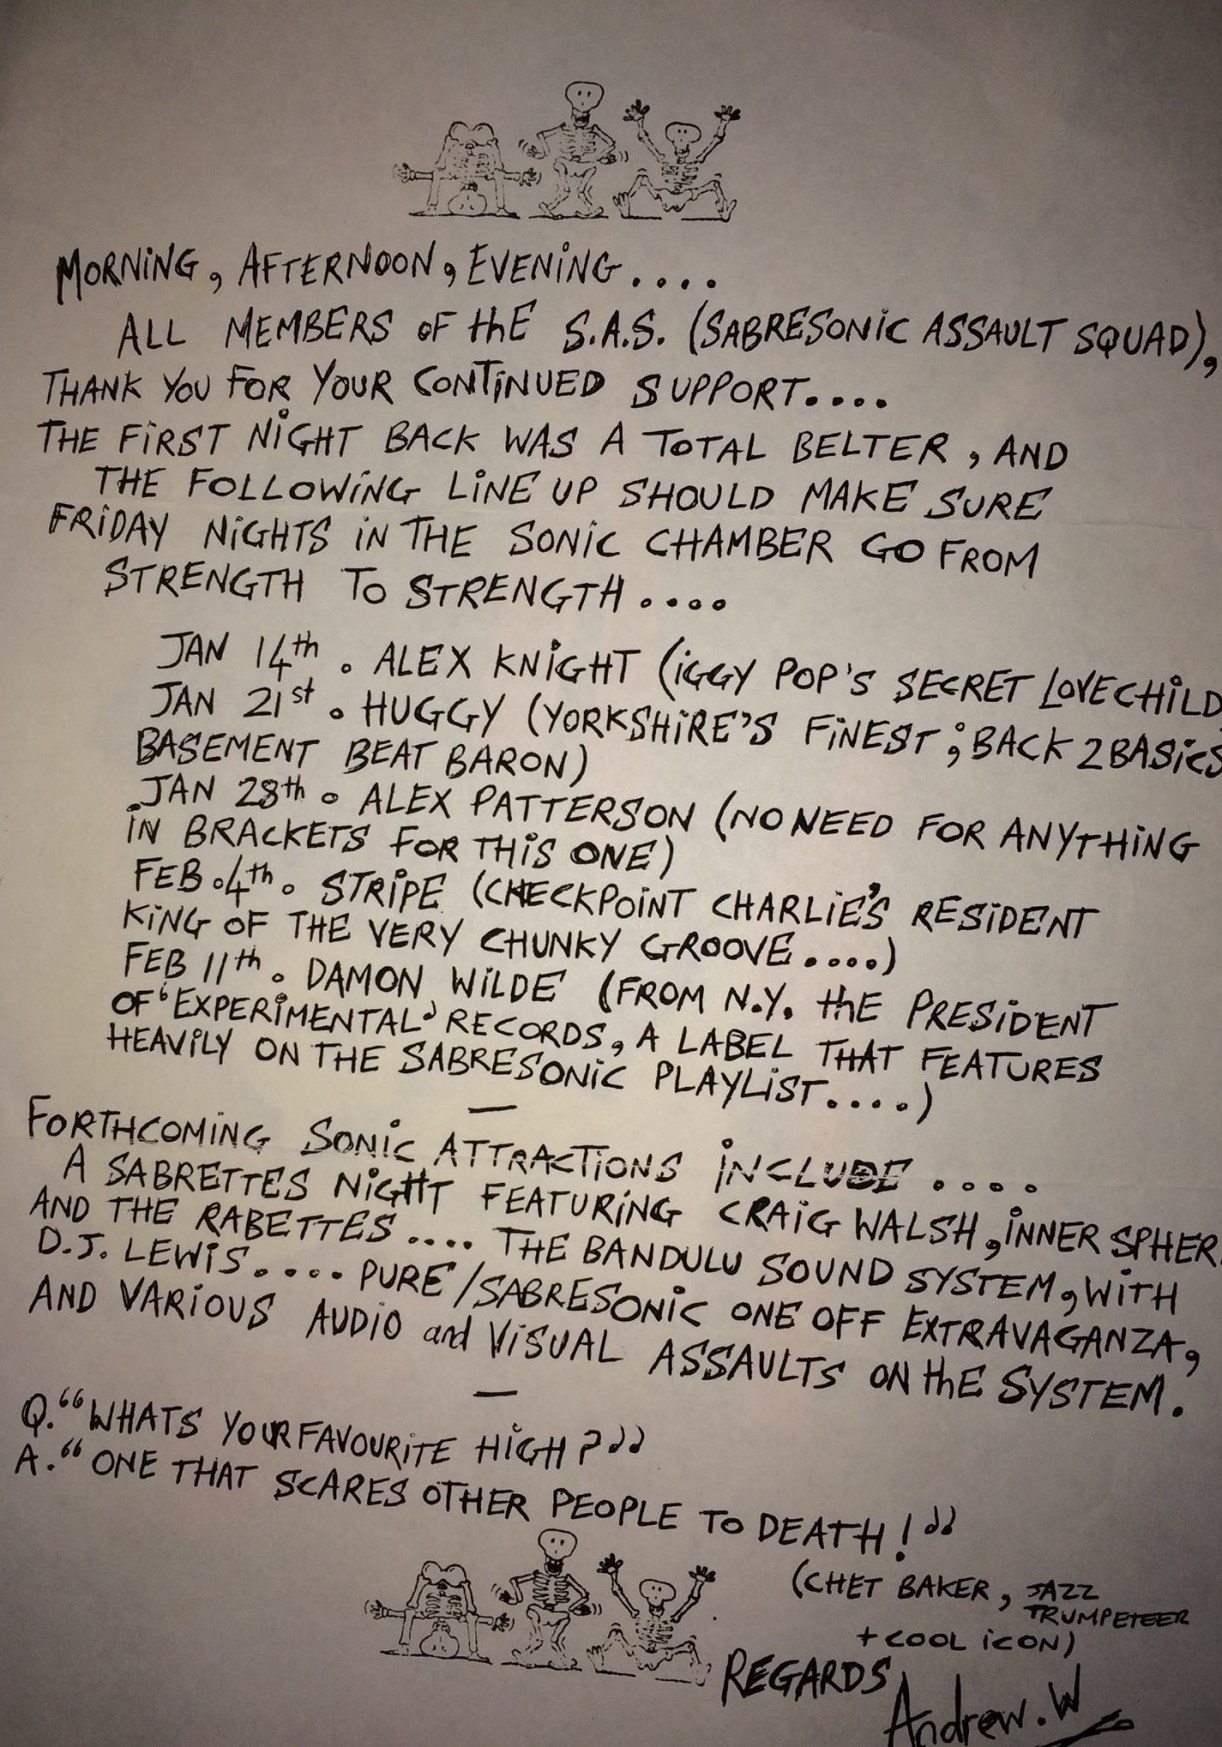 MORNING, AFTERNOON, EVENING....
ALL MEMBERS OF thE S.A.S. (SABRESONIC ASSAULT SQUAD),
THANK YOU FOR YOUR CONTINUED SUPPORT....
THE FIRST NIGHT BACK WAS A TOTAL BELTER, AND
THE FOLLOWING LINE UP SHOULD MAKE SURE
FRIDAY NIGHTS IN THE SONIC CHAMBER GO FROM
STRENGTH TO STRENGTH....
JAN 14th. ALEX KNIGHT (IGGY POP'S SECRET LOVECHILD
JAN 21st. HUGGY (YORKSHIRE'S FINEST; BACK 2 BASICS
BASEMENT BEAT BARON)
JAN 28th. ALEX PATTERSON (NO NEED FOR ANYTHING
IN BRACKETS FOR THIS ONE)
FEB.4th. STRIPE (CHECKPOINT CHARLIE'S RESIDENT
KING OF THE VERY CHUNKY GROOVE....)
FEB 11th. DAMON WILDE (FROM N.Y. thE PRESIDENT
OF 'EXPERIMENTAL' RECORDS, A LABEL THAT FEATURES
HEAVILY ON THE SABRESONIC PLAYLIST....)
—
FORTHCOMING SONIC ATTRACTIONS INCLUDE....
A SABRETTES NIGHT FEATURING CRAIG WALSH, INNER SPHER
AND THE RABETTES.... THE BANDULU SOUND SYSTEM, WITH
D.J. LEWIS.... PURE/SABRESONIC ONE OFF EXTRAVAGANZA,
AND VARIOUS AUDIO and VISUAL ASSAULTS ON thE SYSTEM.
—
Q. "WHATS YOUR FAVOURITE HIGH?"
A. "ONE THAT SCARES OTHER PEOPLE TO DEATH!"
(CHET BAKER, JAZZ
TRUMPETEER
+ COOL ICON)
REGARDS
Andrew.W